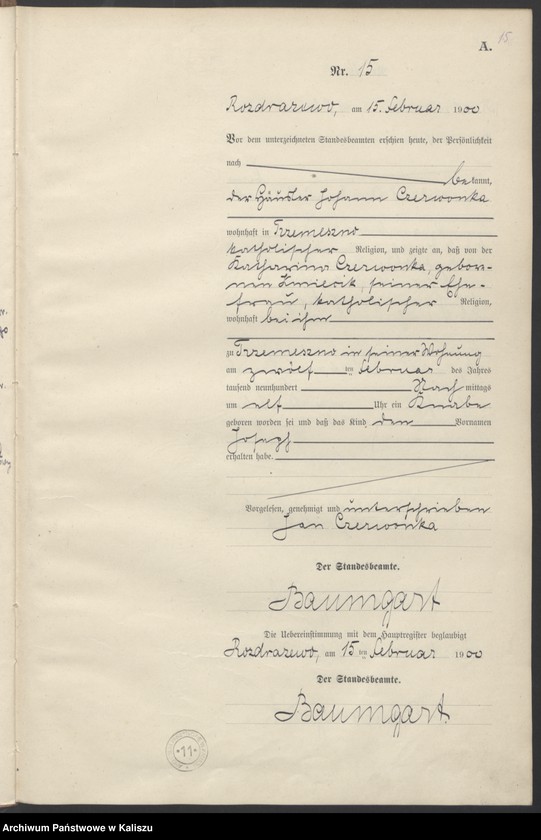 15
A.
Nr. 15
Rozdrazewo, am 15. Februar 1900
Vor dem unterzeichneten Standesbeamten erschien heute, der Persönlichkeit
nach
bekannt,
der Häusler Johann Czerwonka
wohnhaft in Trzemeszno
katholischer Religion, und zeigte an, daß von der
Katharina Czerwonka, gebor-
nen Kmiecik, seiner Ehe-
frau, katholischer Religion,
wohnhaft bei ihm
zu Trzemeszno in seiner Wohnung
am zwölf ten Februar des Jahres
tausend neunhundert Nachmittags
um elf Uhr ein Knabe
geboren worden sei und daß das Kind den Vornamen
Joseph
erhalten habe.
Vorgelesen, genehmigt und unterschrieben
Jan Czerwonka
Der Standesbeamte.
Baumgart
Die Uebereinstimmung mit dem Hauptregister beglaubigt
Rozdrazewo, am 15 ten Februar 1900
Der Standesbeamte.
Baumgart.
11
Archiwum Państwowe w Kaliszu